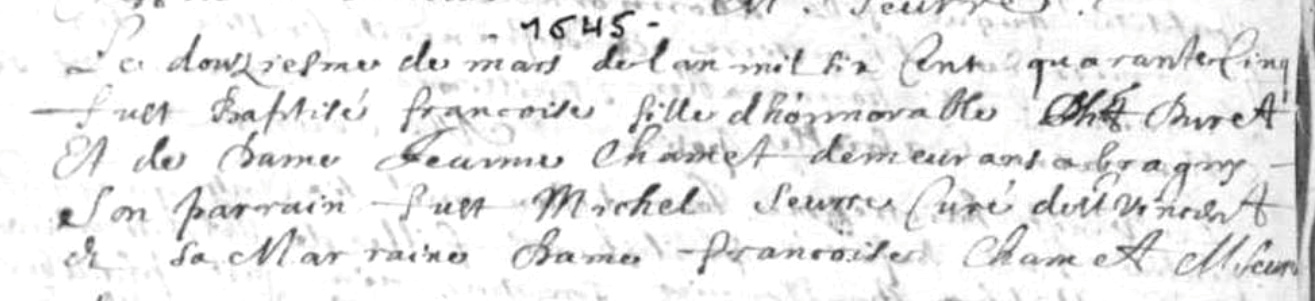 1645
Le douziesme de mars de l an mil six Cent quarante Cinq
fust Baptisé francoise fille dhonnorable Buret
Et de Dame Jeanne Chamet demeurans a bragny
Son parrain fust Michel Seurre Curé de St Vincent
et sa Marraine Dame francoise Chamet M. Seurre